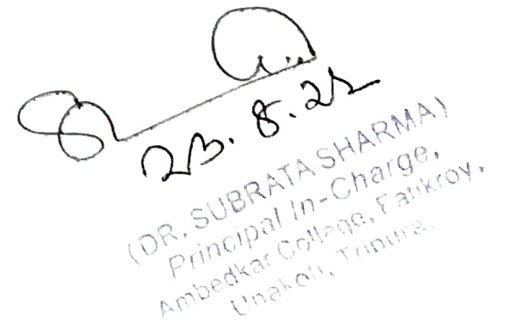 23.8.22
(DR. SUBRATA SHARMA)
Principal In-Charge,
Ambedkar College, Fatikroy,
Unakoti, Tripura.